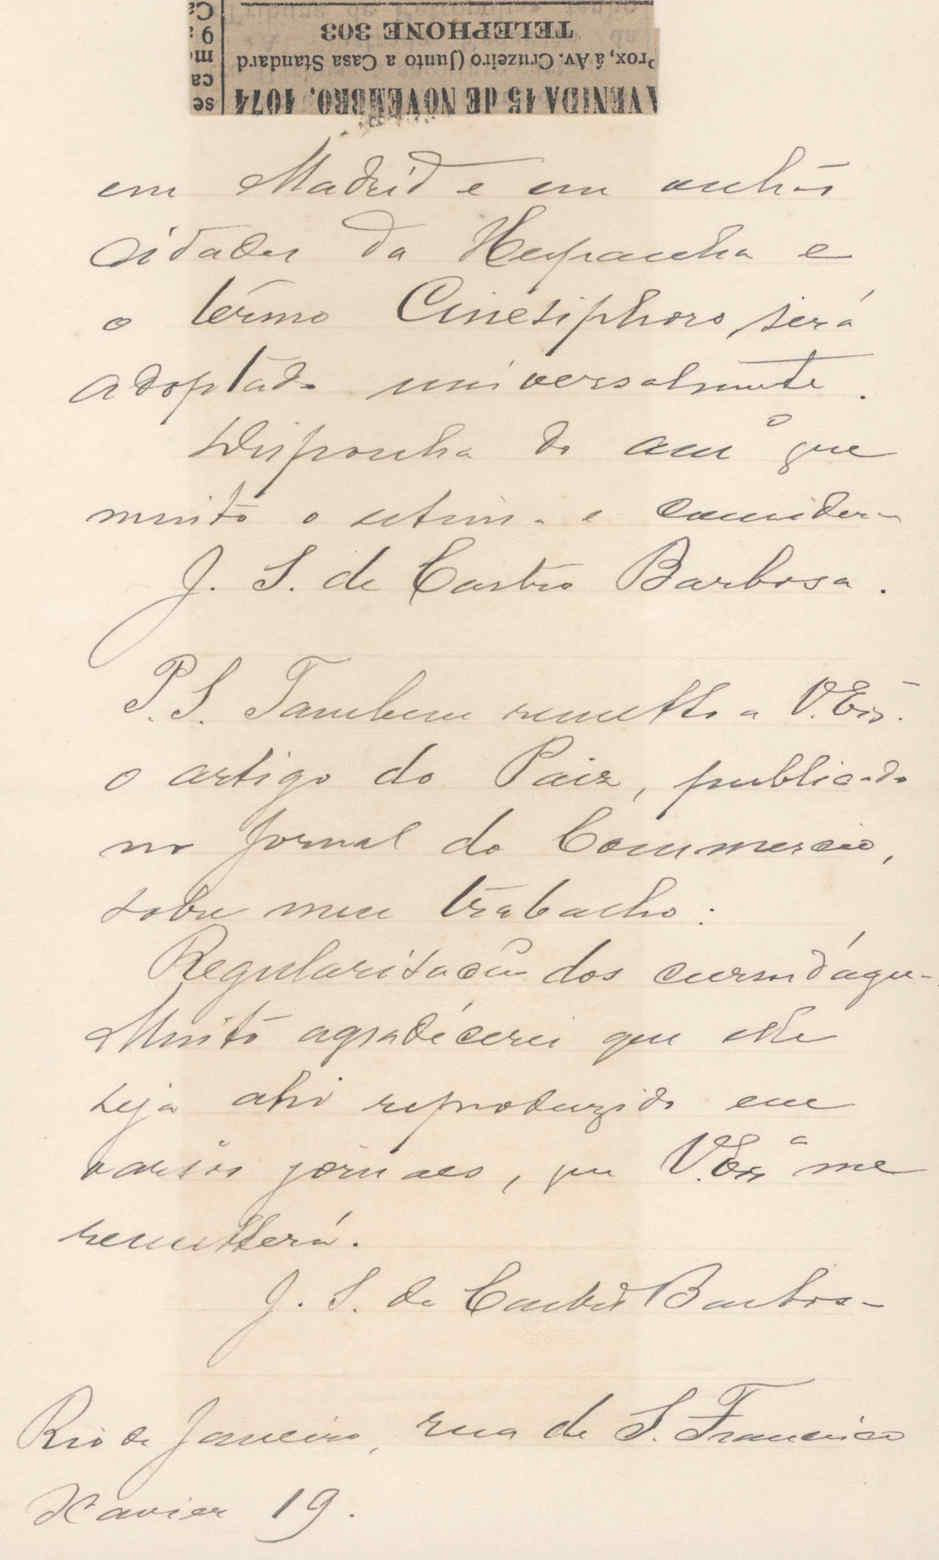 TELEPHONE 303
Prox, á Av. Cruzeiro (Junto a Casa Standard
AVENIDA 15 de NOVEMBRO, 1074
Ca
9 a
m
ca
se
em Madrid e em outras
cidades da Hespanha e
o têrmo Cinesiphoro será
adoptado universalmente.
Disponha do amº que
muito o estima e considera
J. S. de Castro Barbosa.
P.S. Tambem remetto a V. Exª.
o artigo do Paiz, publicado
no Jornal do Commercio,
sobre meu trabalho:
Regularisação dos cursos d'agua.
Muito agradécerei que elle
seja ahi reproduzido em
varios jornaes, que V. Exª me
remetterá.
J. S. de Castro Barbosa
Rio de Janeiro, rua de S. Francisco
Xavier 19.